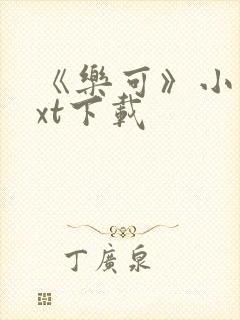 《樂可》小
xt下載
丁廣泉